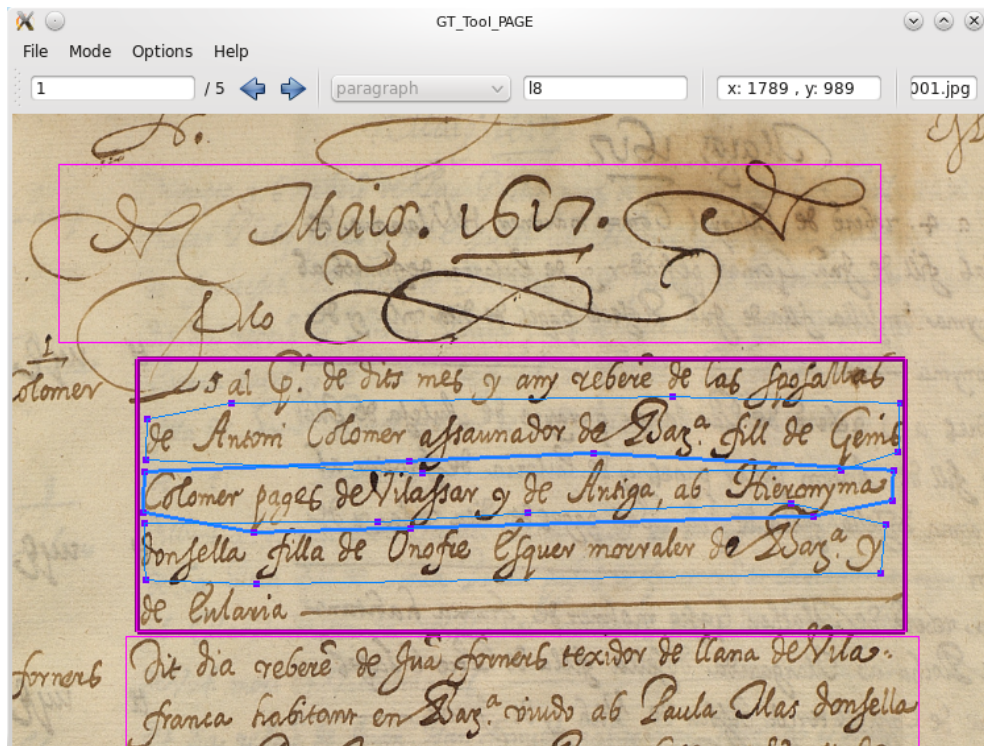 GT_Tool_PAGE
File Mode Options Help
1 / 5 paragraph l8 x: 1789 , y: 989 001.jpg
Maig. 1617.
1
Colomer
al p.ͬ de dits mes y any rebere de las sposallas
de Antoni Colomer assaunador de Barͣ. fill de Genis
Colomer pages de Vilassar y de Antiga, ab Hieronyma
donsella filla de Onofre Esquer morraler de Barͣ. y
de Eularia
forners
Dit dia reberē de Juā forners texidor de llana de Vila-
franca habitant en Barͣ. viudo ab Paula Mas donsella